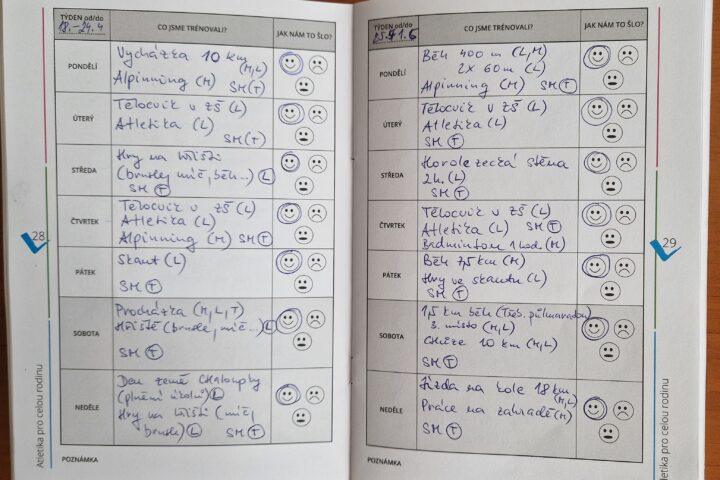 TÝDEN od/do
18.-24.4
CO JSME TRÉNOVALI?
JAK NÁM TO ŠLO?
PONDĚLÍ
Vycházka 10 km
(M,L)
Alpinning (M) SM(T)
ÚTERÝ
Tělocvik v ZŠ (L)
Atletika (L)
SM(T)
STŘEDA
Hry na hřišti
(brusle, míč, běh...) (L)
SM (T)
ČTVRTEK
Tělocvik v ZŠ (L)
Atletika (L)
Alpinning (M) SM (T)
PÁTEK
Skaut (L)
SM (T)
SOBOTA
Procházka (M,L,T)
Hřiště (brusle, míč...) (L)
SM (T)
NEDĚLE
Den země Chaloupky
(plnění úkolů) (L)
Hry na hřišti (míč,
brusle) (L) SM (T)
POZNÁMKA
28
Atletika pro celou rodinu
TÝDEN od/do
CO JSME TRÉNOVALI?
JAK NÁM TO ŠLO?
PONDĚLÍ
Běh 400 m (L,M)
2x 60 m (L)
Alpinning (M) SM (T)
ÚTERÝ
Tělocvik v ZŠ (L)
Atletika (L)
SM (T)
STŘEDA
Horolezecká stěna
2h. (L)
SM (T)
ČTVRTEK
Tělocvik v ZŠ (L)
Atletika (L) SM (T)
Badminton 1 hod. (M)
PÁTEK
Běh 7,5 km (M)
Hry ve skautu (L)
SM (T)
SOBOTA
1,5 km běh (Třeb. půlmaraton)
3. místo (M,L)
Chůze 10 km (M,L)
SM (T)
NEDĚLE
Jízda na kole 18 km
(M,L)
Práce na zahradě (M)
SM (T)
POZNÁMKA
29
letika pro celou rodinu